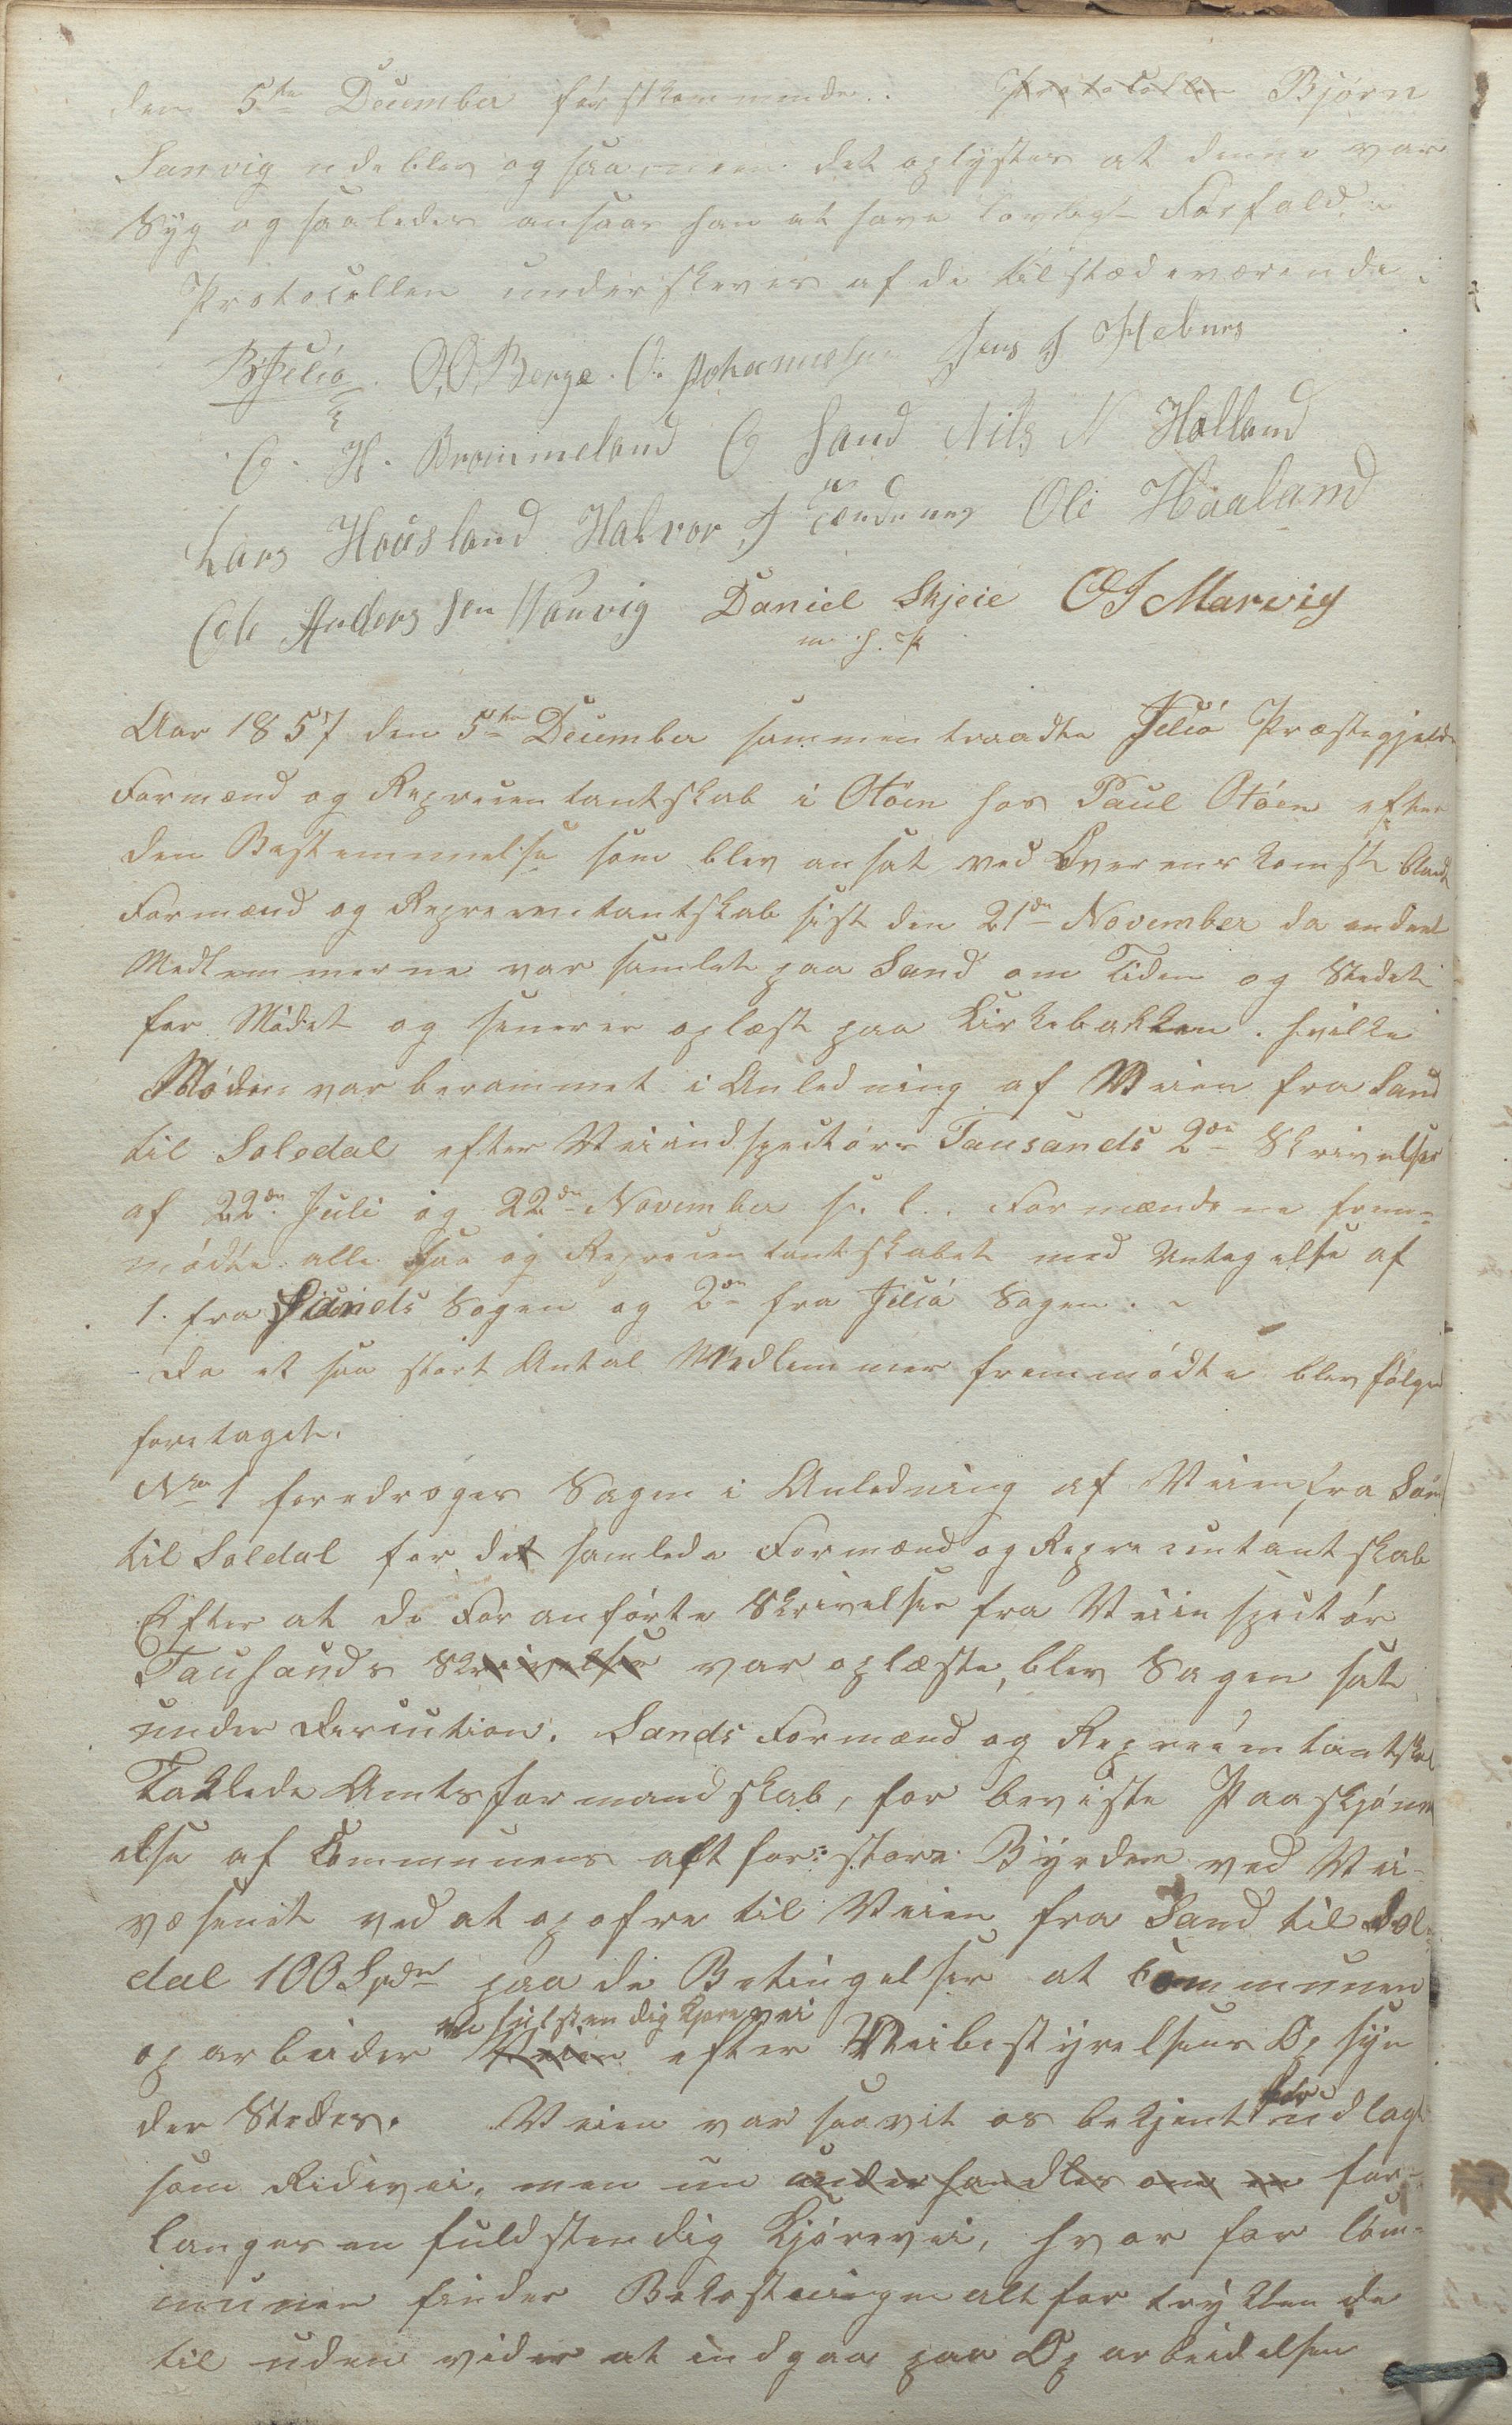 den 5te December førstkommende. Protocollen Bjørn
Sanvig udeblev ogsaa men det oplystes at denne var
Syg og saaledes ansaas han at have lovligt Forfald.
Protocollen underskreves af de tilstædeværende
B Jelsø. O. O. Berge. O. Johannesen Jens J Hebnes
C. H. Brommeland C Sand Nils N Halland
Lars Housland Halvor J Ole Haaland
Ole Andersen Vanvig Daniel Skjeie O J Marvig
m. f. P
Aar 1857 den 5te December sammentraadte Jelsø Præstegjelds
Formænd og Repræsentantskab i Otøen hos Paul Otøen efter
den Bestemmelse som blev ansat ved Overenskomst blandt
Formænd og Repræsentantskab sist den 21de November da endeel
Medlemmerne var samlet paa Sand om Tiden og Stedet
for Mødet og senere oplæst paa Kirkebakken. hvilke
Møden var berammet i Anledning af Veien fra Sand
til Soledal efter Veiindspectørs Tausands 2de Skrivelser
af 22de Juli og 22de November h. l.. Formændene frem=
mødte alle saa og Repræsentantskabet med Untagelse af
1. fra Sands Sogen og 2de fra Jelsø Sogen. ~
Da et saa stort Antal Medlemmer fremmødte blev følgen
foretaget.
No 1 foredroges Sagen i Anledning af Veien fra San
til Soldal for det samlede Formænd og Repræsentantskab
Efter at de Foranførte Skrivelser fra Veiinspectør
Tauhands Skrivelse var oplæste, blev Sagen sat
under Discution. Sands Formænd og Repræsentantskab
Taklede Amtsformandskab, for beviste Paaskjønn
else af Communens alt for store Byrder ved Vei-
væsenet ved at opofre til Veien fra Sand til Sol
dal 100 Spdr paa de Betingelser at Communen
en fulstendig Kjørevei
oparbeider Veien efter Veibestyrelsens Opsyn
der Stedes. Veien var saavit os bekjent før udlagt
som Ridevei, men nu underhandles om en for-
langes en fuldstendig Kjørevei, hvor for Com=
munen finder Bekostningen alt for trykkende
til uden vider at indgaa paa Oparbeidelsen